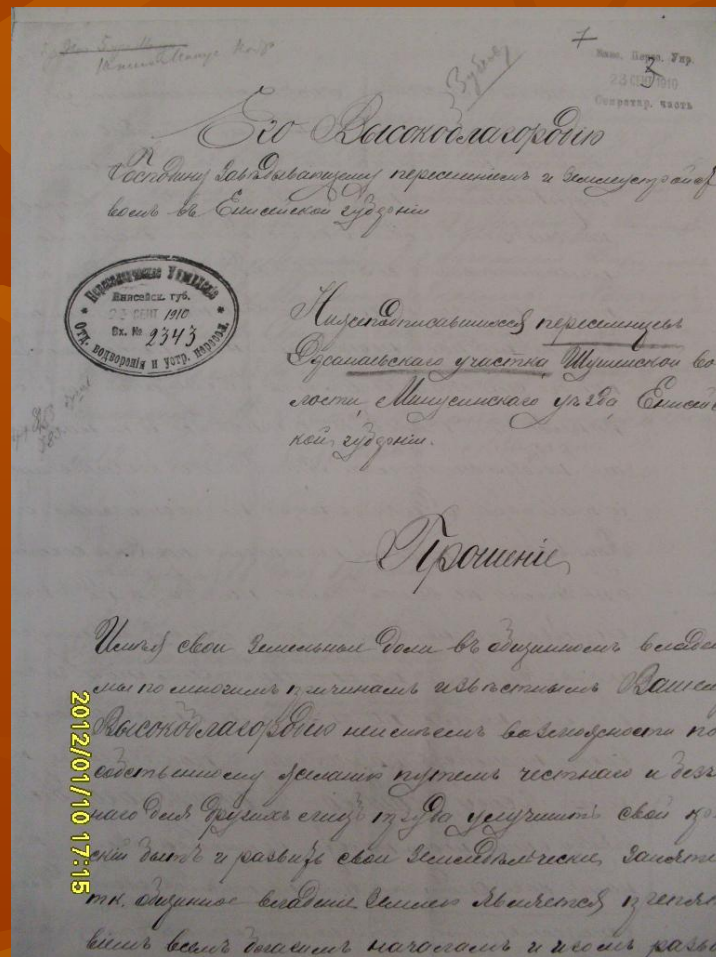 7
Енис. Перес. Упр.
23 СЕНТ 1910
Секретар. часть
Зубков
3
Его Высокоблагородию
Господину Завѣдывающему переселеніемъ и землеустройст
вомъ въ Енисейской губерніи
Переселенческое Управленіе
Енисейск. губ.
23 СЕНТ 1910
Вх. № 2343
Отд. водворенія и устр. пересел.
Нижеподписавшихся переселенцевъ
участка, Шушенской во
лости, Минусинскаго уѣзда, Енисейс
кой губерніи.
Прошеніе
Имѣя свои земельныя доли въ общинномъ владен
мы по многимъ причинамъ извѣстнымъ Вашему
Высокоблагородію неимѣемъ возможности по
собственному желанію путемъ честнаго и безъ
наго для другихъ лицъ труда улучшить свой кр
скій бытъ и развить свои земледѣльческія занятія
тк. общинное владеніе землею является препят
віемъ всемъ благимъ началамъ и
2012/01/10 17:15